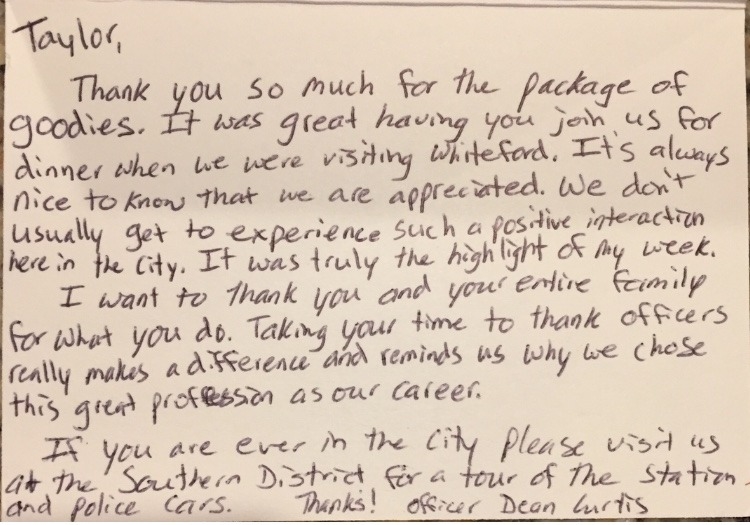 Taylor,
Thank you so much for the package of
goodies. It was great having you join us for
dinner when we were visiting Whiteford. It's always
nice to know that we are appreciated. We don't
usually get to experience such a positive interaction
here in the City. It was truly the highlight of my week.
I want to thank you and your entire family
for what you do. Taking your time to thank officers
really makes a difference and reminds us why we chose
this great profession as our career.
If you are ever in the City please visit us
at the Southern District for a tour of the station
and police cars. Thanks! Officer Dean Curtis